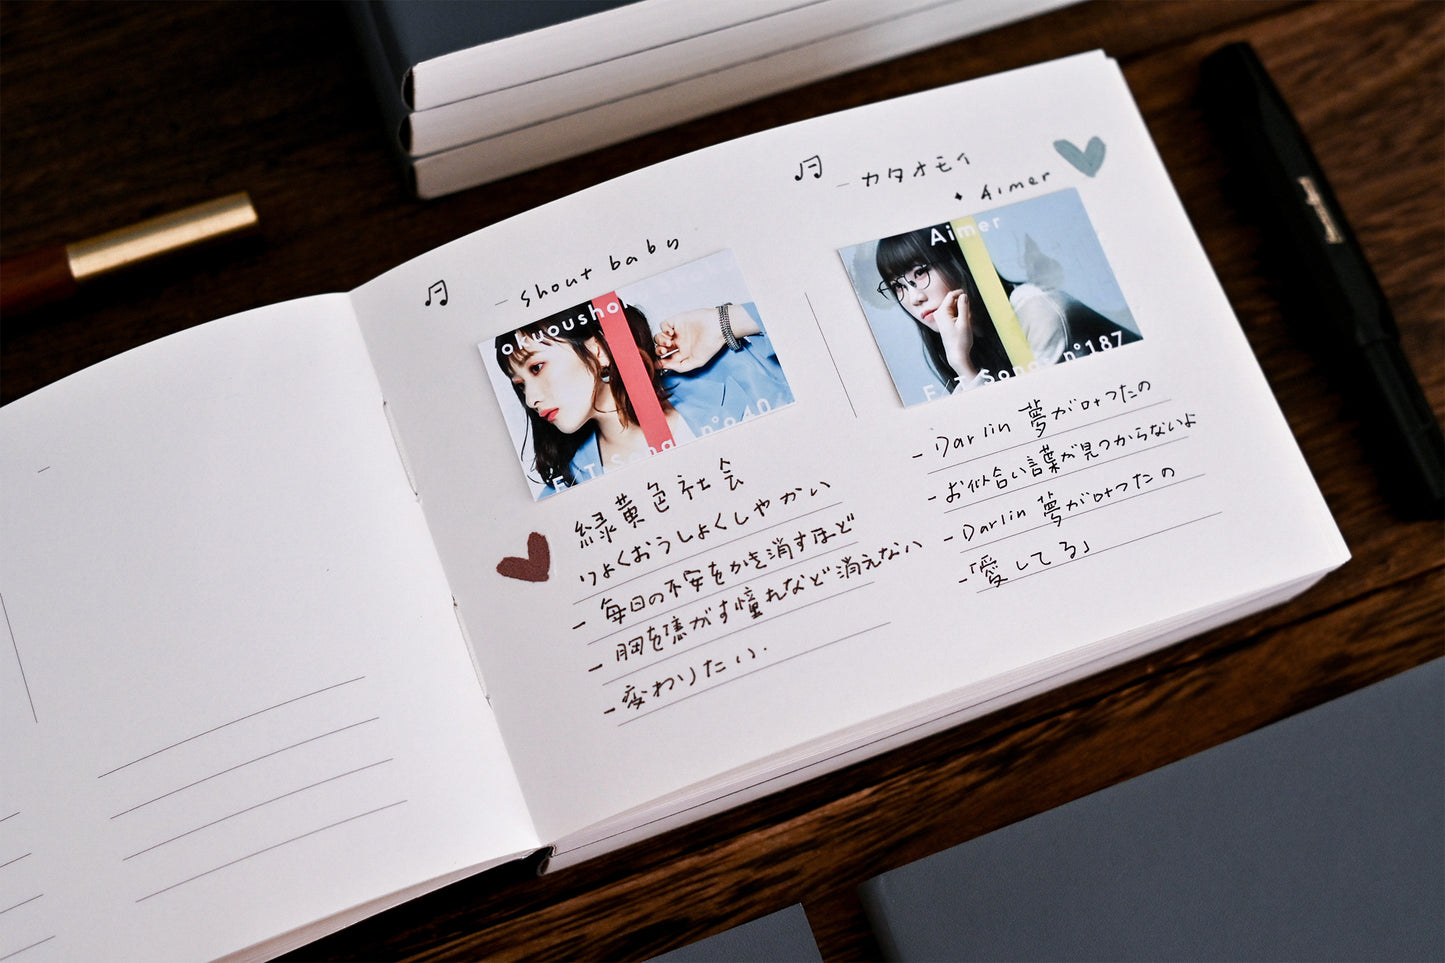 - shout baby
okuoushok
F/T Song n°940
緑黄色社会
りょくおうしょくしゃかい
- 毎日の不安をかき消すほど
- 胸を焦がす憧れなど消えない
- 変わりたい.
- カタオモイ
✦ Aimer
Aimer
F/T Song n°187
- Darlin 夢が叶ったの
- お似合い言葉が見つからないよ
- Darlin 夢が叶ったの
-「愛してる」